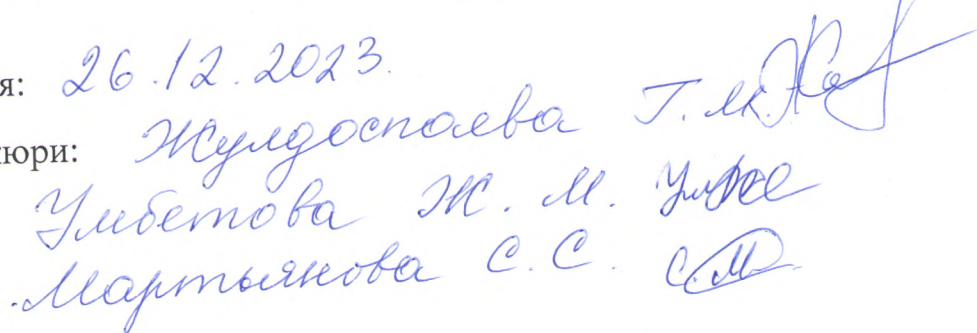 я: 26.12.2023.
юри: Жулдоспаева Г. М.
Умбетова Ж. М.
Мартьянова С. С.